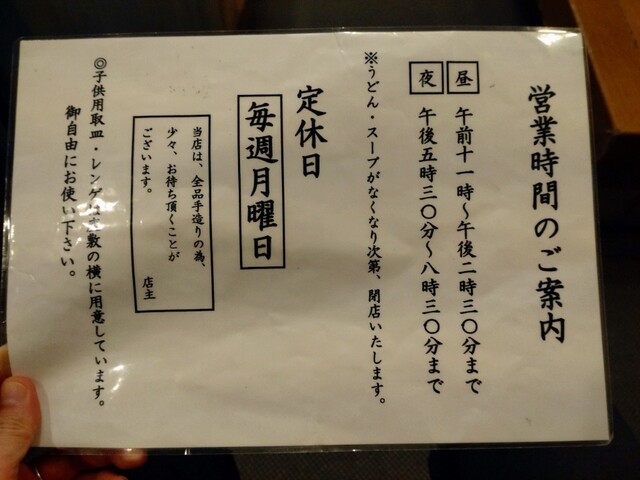 営業時間のご案内
昼 午前十一時～午後二時三〇分まで
夜 午後五時三〇分～八時三〇分まで
※うどん・スープがなくなり次第、閉店いたします。
定休日
毎週月曜日
当店は、全品手造りの為、
少々、お待ち頂くことが
ございます。
店主
◎子供用取皿・レンゲは座敷の横に用意しています。
御自由にお使い下さい。